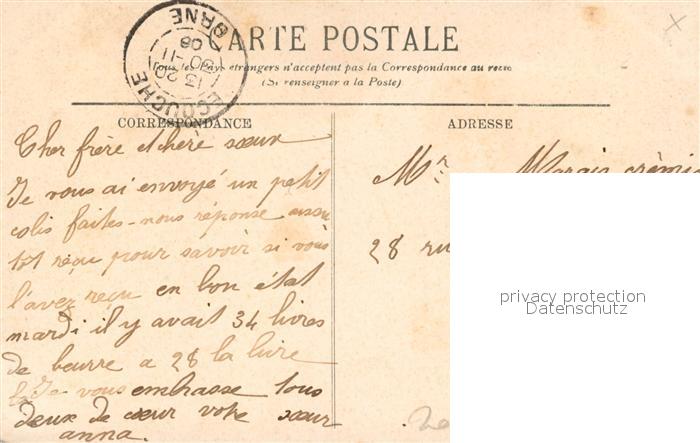 CARTE POSTALE
Tous les Pays etrangers n'acceptent pas la Correspondance au recto
(Si renseigner a la Poste)
ECOUCHÉ
ORNE
13 20
30-11
08
CORRESPONDANCE
ADRESSE
Cher frère et chere sœur
Je vous ai envoyé un petit
colis faites-nous réponse aussi
tot reçu pour savoir si vous
l'avez reçu en bon état
mardi il y avait 34 livres
de beurre a 28 la livre
Je vous embrasse tous
deux de cœur votre sœur
anna.
Mr. Marais crèmie
28 ru
privacy protection
Datenschutz